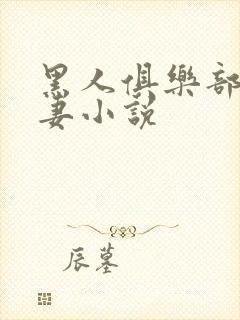 黑人俱樂部
妻小說
辰墓